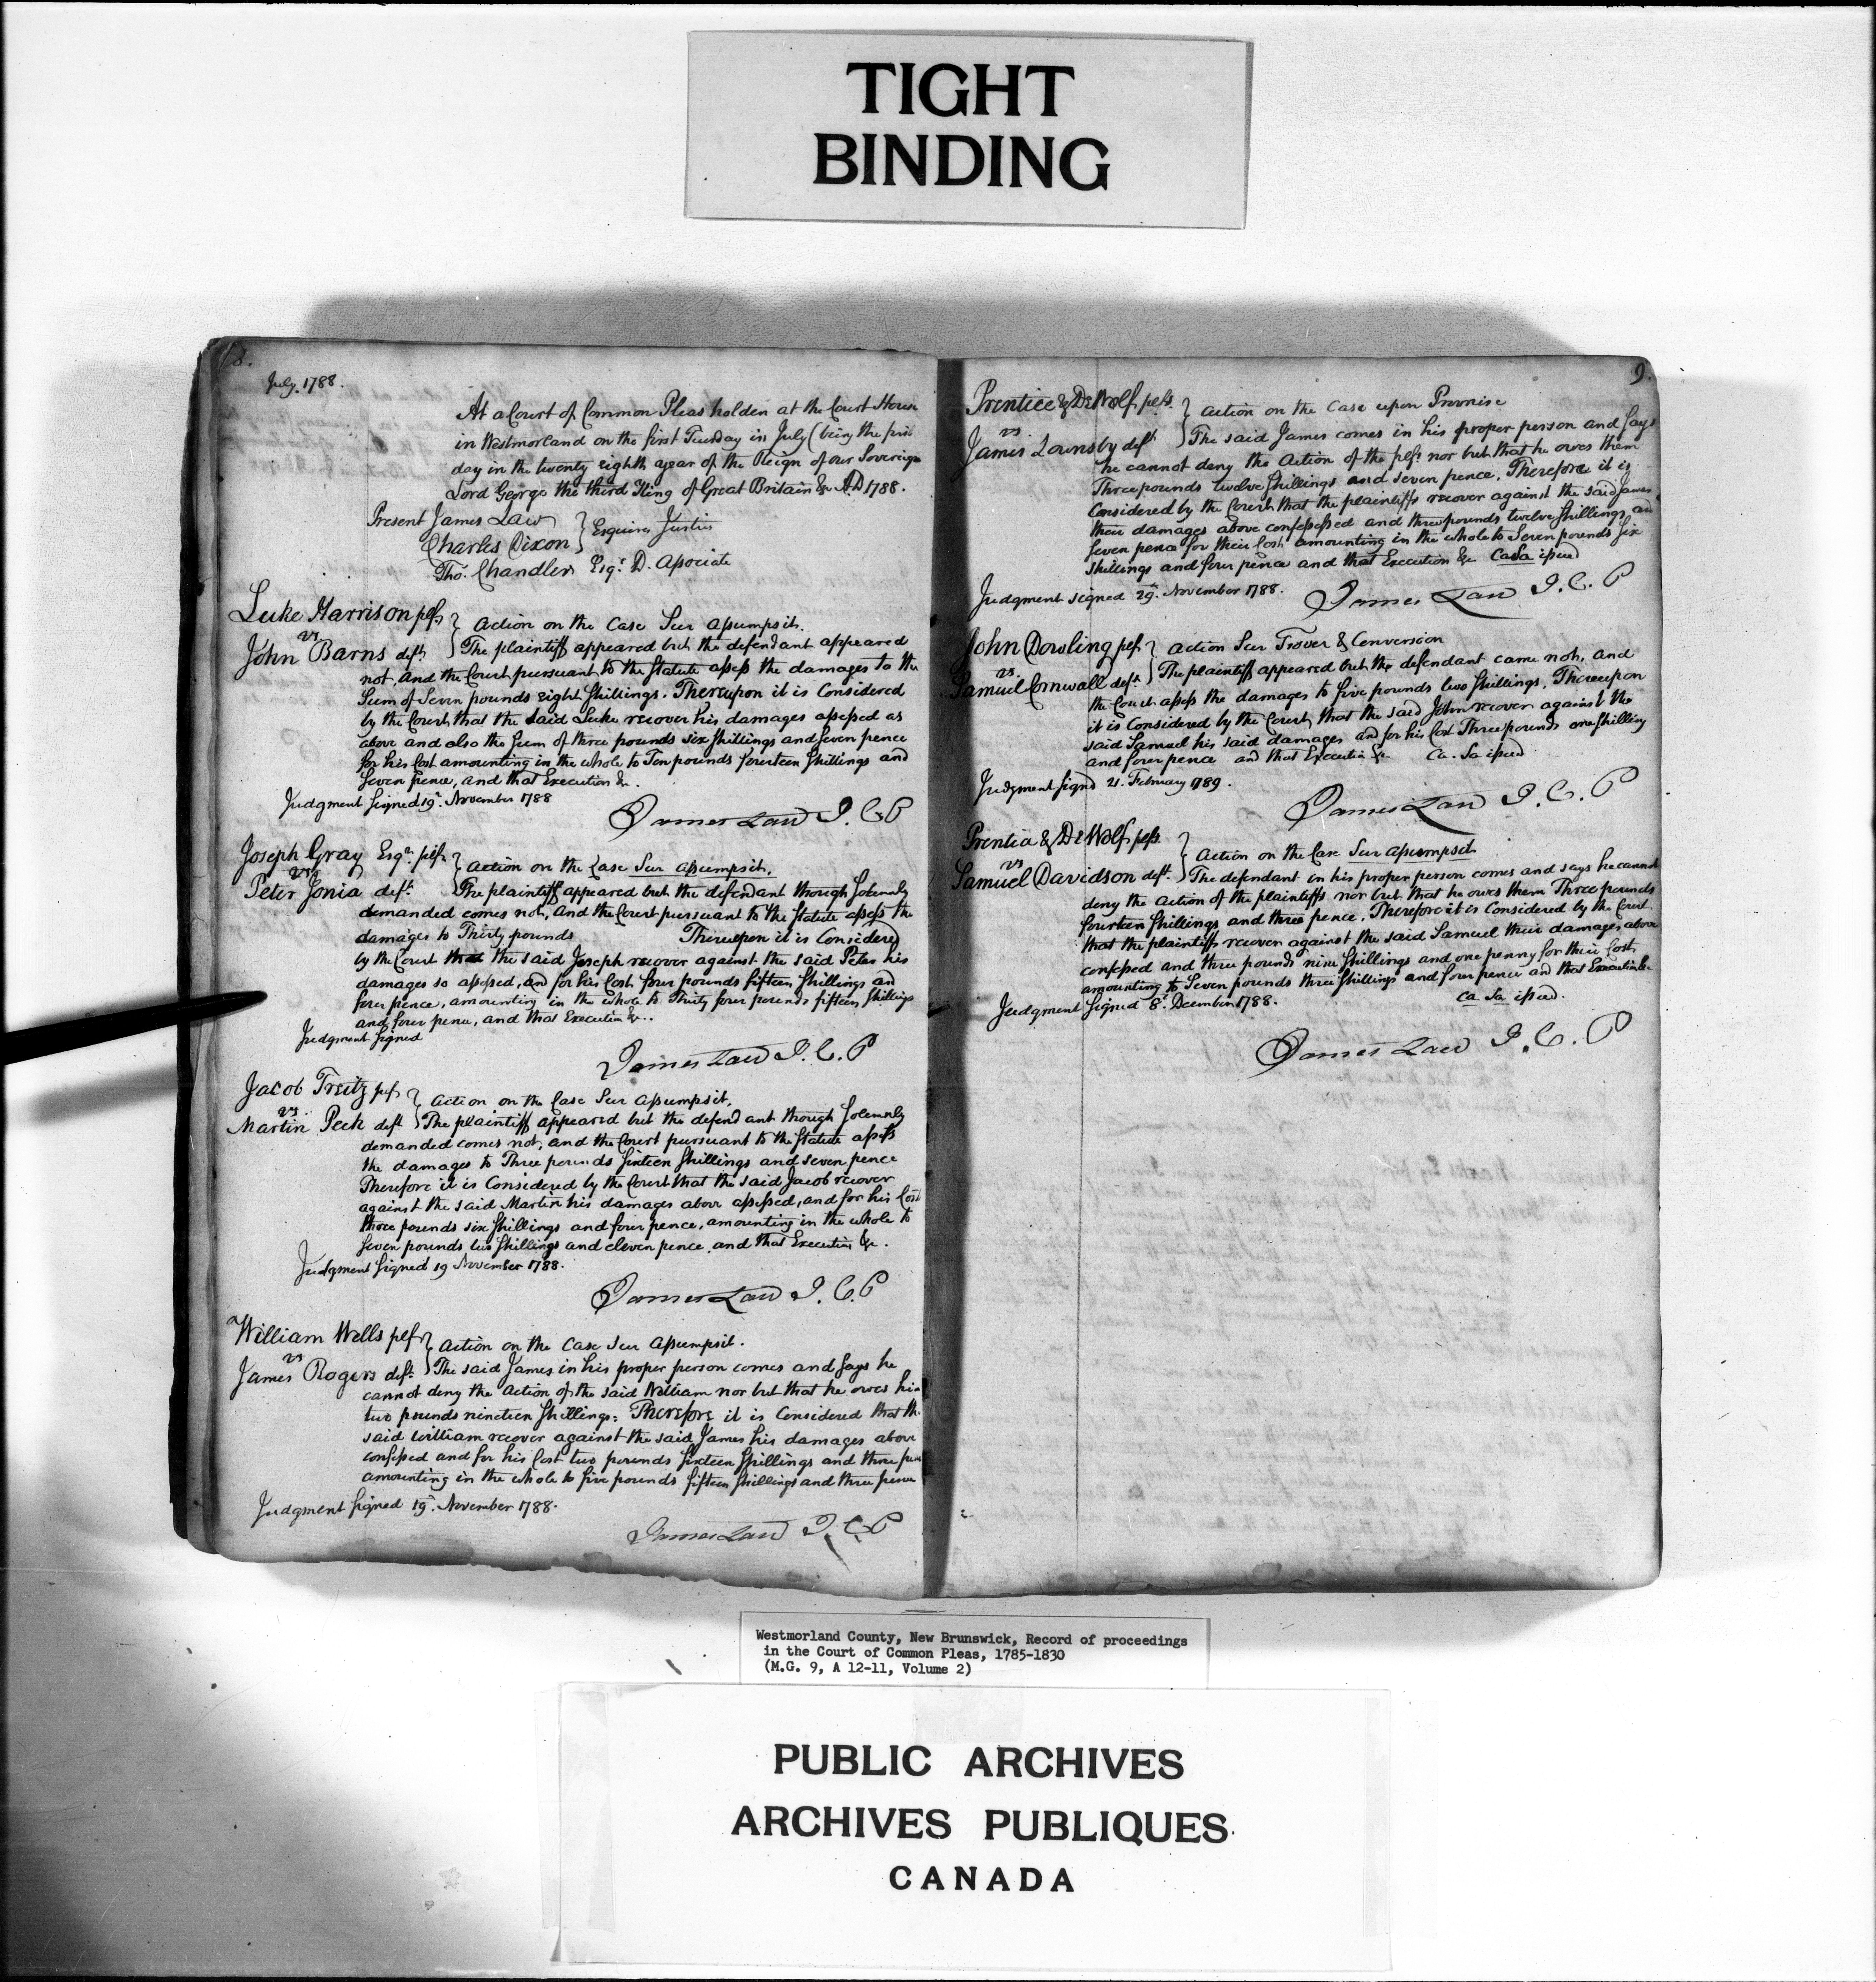 TIGHT
BINDING
8.
July. 1788.
At a Court of Common Pleas holden at the Court House
in Westmorland on the first Tuesday in July (being the first
day in the twenty eighth year of the Reign of our Sovereign
Lord George the third King of Great Britain &c A.D 1788.
Present James Law
Charles Dixon } Esquires Justices
Tho. Chandler Esqr. D. Associate
Luke Harrison plf.
vs
John Barns deft.
} Action on the Case Sur Assumpsit.
The plaintiff appeared but the defendant appeared
not, and the Court pursuant to the Statute assess the damages to the
Sum of Seven pounds eight Shillings. Thereupon it is Considered
by the Court that the said Luke recover his damages assessed as
above and also the Sum of three pounds six Shillings and Seven pence
for his Cost amounting in the whole to Ten pounds fourteen Shillings and
Seven pence, and that Execution &c.
Judgment Signed 19. November 1788
James Law J. C P
Joseph Gray Esqr. plf.
vs
Peter Jonia deft.
} Action on the Case Sur Assumpsit.
The plaintiff appeared but the defendant though Solemnly
demanded comes not, and the Court pursuant to the Statute assess the
damages to Thirty pounds Thereupon it is Considered
by the Court that the said Joseph recover against the said Peter his
damages so assessed, and for his Cost four pounds fifteen Shillings and
four pence, amounting in the whole to Thirty four pounds fifteen Shillings
and four pence, and that Execution &c.
Judgment Signed
James Law J. C. P
Jacob Treitz plf.
vs.
Martin Peck deft.
} Action on the Case Sur Assumpsit.
The plaintiff appeared but the defendant though Solemnly
demanded comes not, and the Court pursuant to the Statute assess
the damages to Three pounds Sixteen Shillings and seven pence
Therefore it is Considered by the Court that the said Jacob recover
against the said Martin his damages above assessed, and for his Cost
three pounds six Shillings and four pence, amounting in the whole to
Seven pounds two Shillings and eleven pence, and that Execution &c.
Judgment Signed 19 November 1788.
James Law J. C. P
William Wells plf.
vs
James Rogers deft.
} Action on the Case Sur Assumpsit.
The said James in his proper person comes and Says he
cannot deny the Action of the said William nor but that he owes him
two pounds nineteen Shillings: Therefore it is Considered that the
said William recover against the said James his damages above
confessed and for his Cost two pounds Sixteen Shillings and three pence
amounting in the whole to five pounds fifteen Shillings and three pence
Judgment Signed 19. November 1788.
James Law J. C. P
9.
Prentice & DeWolf plfs.
vs.
James Lounsby deft
} Action on the Case upon Promise
The said James comes in his proper person and Says
he cannot deny the Action of the plfs. nor but that he owes them
Three pounds twelve Shillings and seven pence. Therefore it is
Considered by the Court that the plaintiffs recover against the said James
their damages above confessed and three pounds twelve Shillings and
Seven pence for their Cost amounting in the whole to Seven pounds Six
Shillings and four pence and that Execution &c CaSa issued
Judgment signed 29. November 1788.
James Law J. C. P
John Dowling plf.
vs.
Samuel Cornwall deft.
} Action Sur Trover & Conversion
The plaintiff appeared but the defendant came not, and
the Court assess the damages to five pounds two Shillings, Thereupon
it is Considered by the Court that the said John recover against the
said Samuel his said damages and for his Cost Three pounds one Shilling
and four pence and that Execution &c. Ca. Sa issued
Judgment Signd 21. February 1789.
James Law J. C. P
Prentice & DeWolf plfs.
vs
Samuel Davidson deft.
} Action on the Case Sur assumpsit
The defendant in his proper person comes and says he cannot
deny the Action of the plaintiffs nor but that he owes them Three pounds
fourteen Shillings and three pence. Therefore it is Considered by the Court
that the plaintiffs recover against the said Samuel their damages above
confessed and three pounds nine Shillings and one penny for their Cost,
amounting to Seven pounds three Shillings and four pence and that Execution &c
Ca. Sa issued.
Judgment Signed 8. December 1788.
James Law J. C. P
Westmorland County, New Brunswick, Record of proceedings
in the Court of Common Pleas, 1785-1830
(M.G. 9, A 12-11, Volume 2)
PUBLIC ARCHIVES
ARCHIVES PUBLIQUES
CANADA